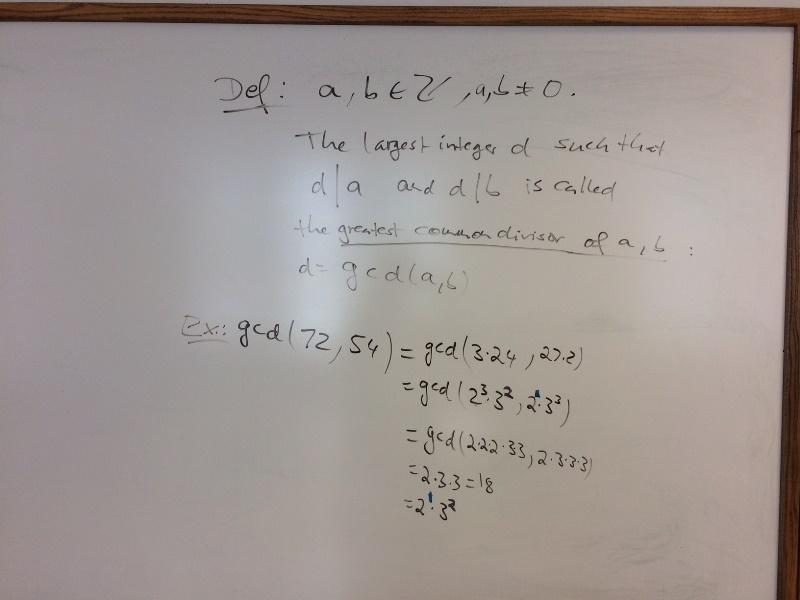 Def: a, b ∈ ℤ, a, b ≠ 0.
The largest integer d such that
d | a and d | b is called
the greatest common divisor of a, b :
d = gcd(a, b)
Ex.: gcd(72, 54) = gcd(3·24, 27·2)
= gcd(2³·3², 2¹·3³)
= gcd(2·2·2·33, 2·3·3·3)
= 2·3·3 = 18
= 2¹·3²